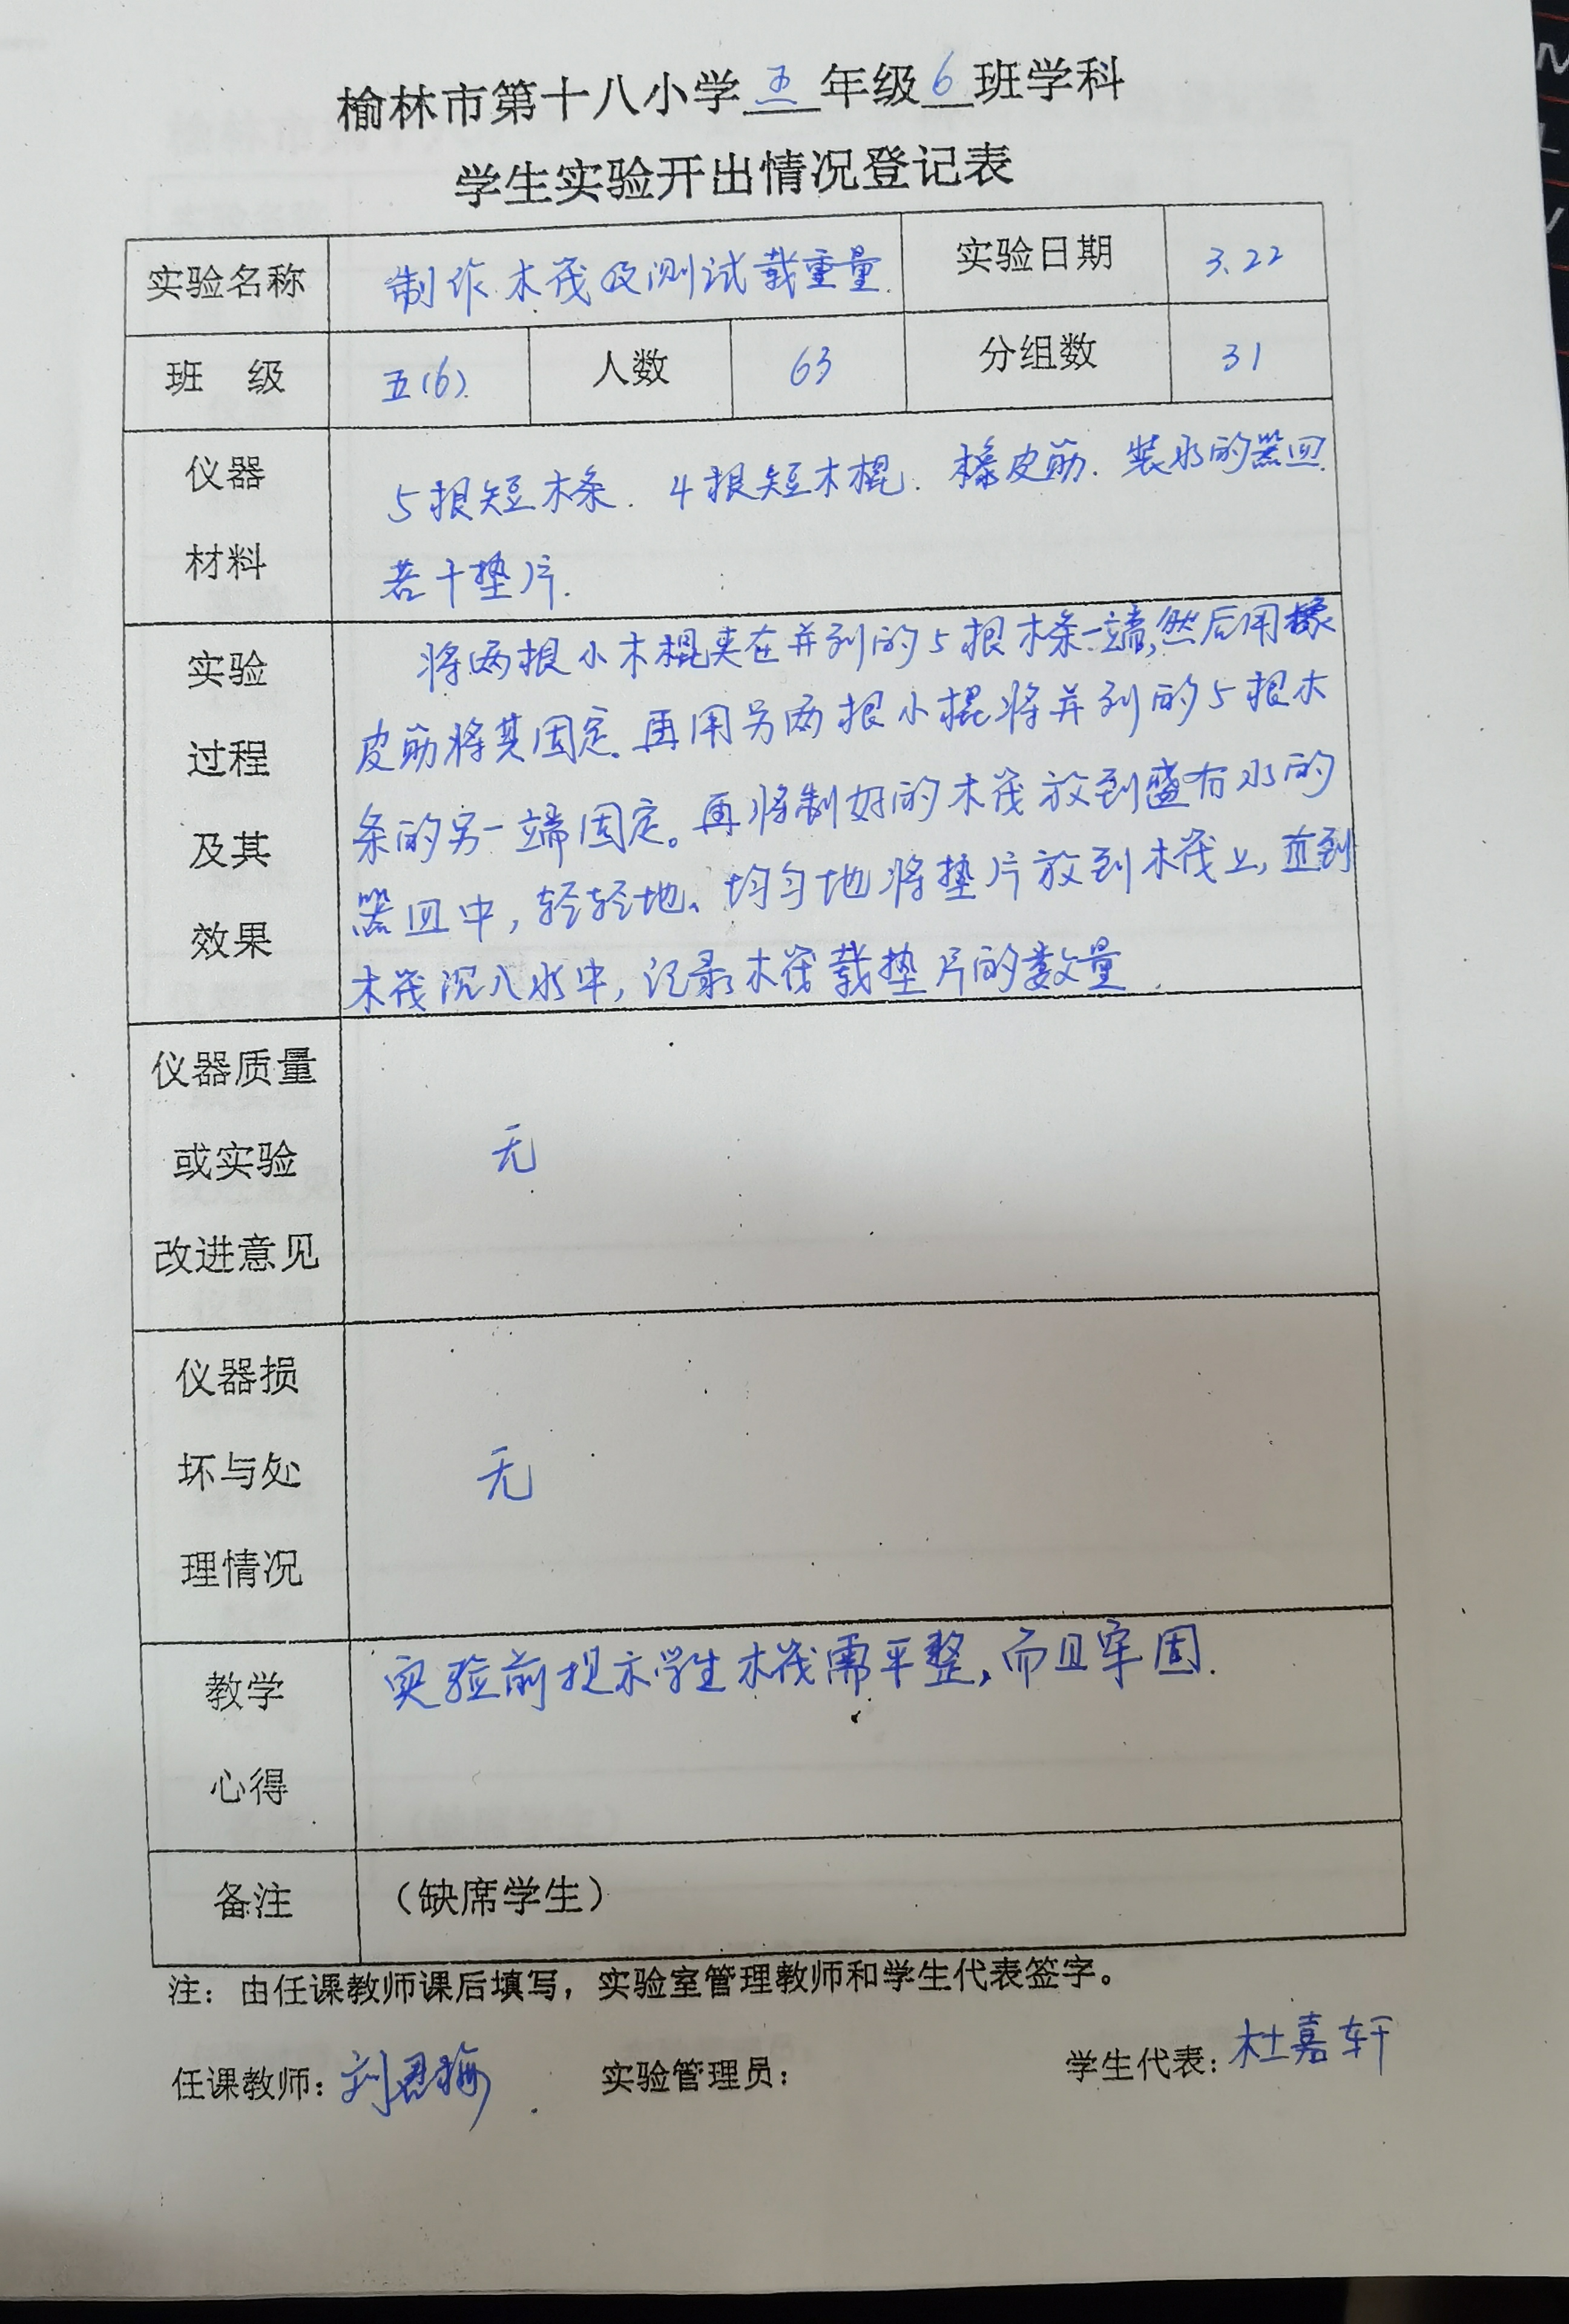 榆林市第十八小学五年级6班学科
学生实验开出情况登记表
实验名称 制作木筏及测试载重量. 实验日期 3.22
班 级 五(6). 人数 63 分组数 31
仪器
材料
5根短木条. 4根短木棍. 橡皮筋. 装水的器皿.
若干垫片.
实验
过程
及其
效果
将两根小木棍夹在并列的5根木条一端,然后用橡
皮筋将其固定.再用另两根小棍将并列的5根木
条的另一端固定。再将制好的木筏放到盛有水的
器皿中,轻轻地、均匀地将垫片放到木筏上,直到
木筏沉入水中,记录木筏载垫片的数量.
仪器质量
或实验
改进意见
无
仪器损
坏与处
理情况
无
教学
心得
实验前提示学生木筏需平整,而且牢固.
备注 （缺席学生）
注：由任课教师课后填写，实验室管理教师和学生代表签字。
任课教师：刘 梅 实验管理员： 学生代表：杜嘉轩